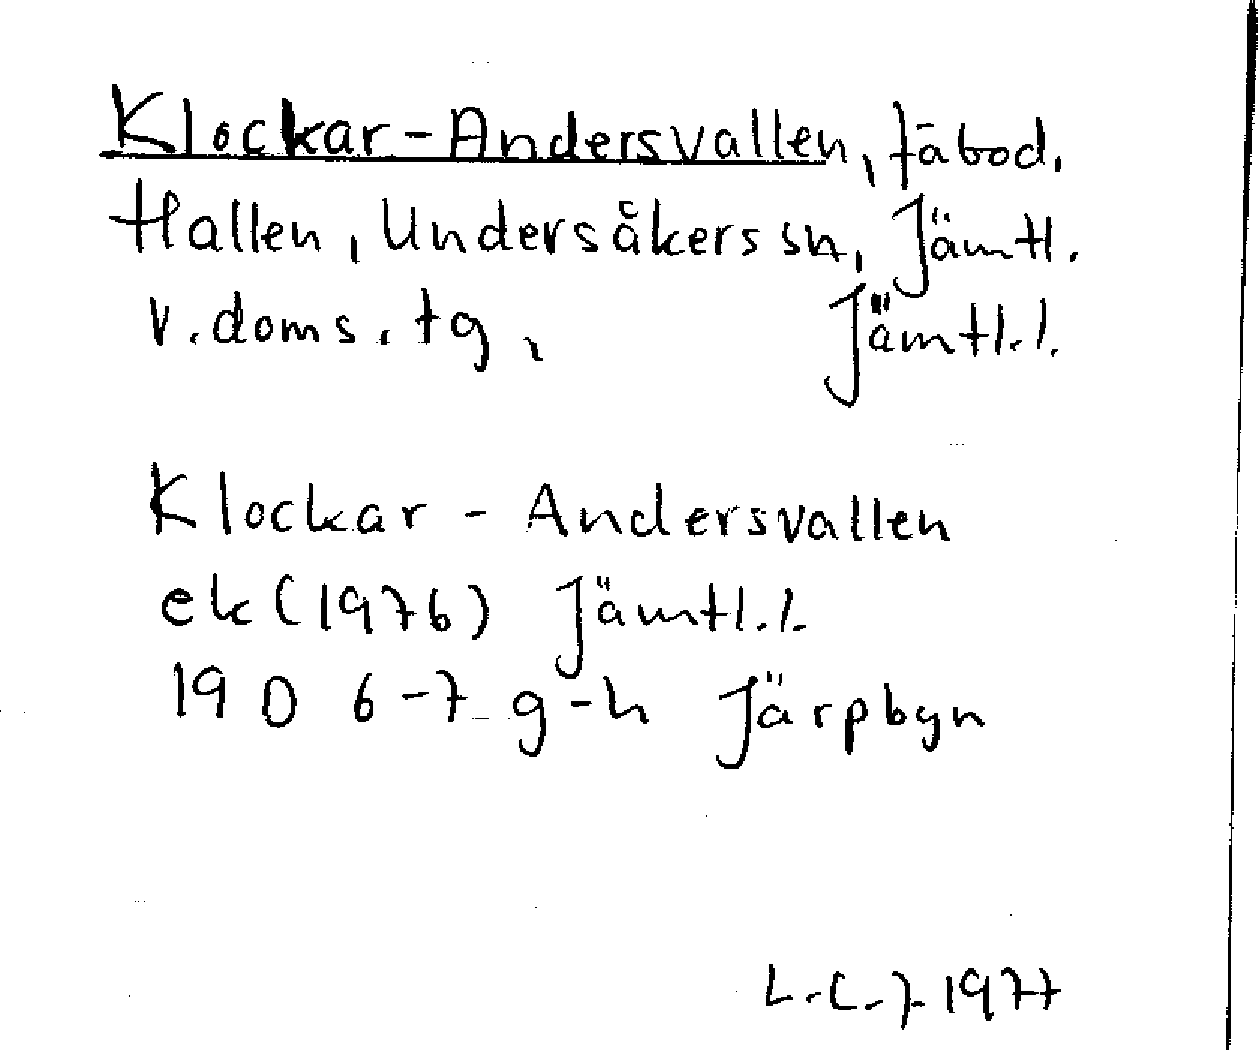 Klockar-Andersvallen, fäbod.
Hallen, Undersåkers sn, Jämtl.
v. doms. tg, Jämtl. l.
Klockar - Andersvallen
ek (1976) Jämtl. l.
19 D 6-7 g-h Järpbyn
L. C. J. 1977